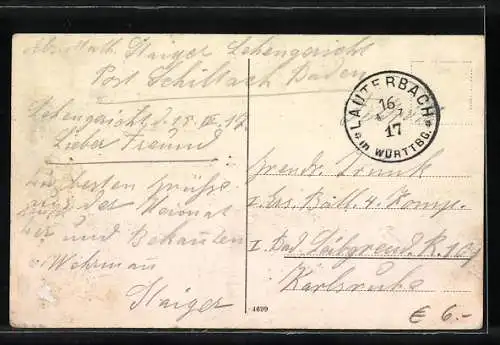 Staiger Lehengericht
Post Schiltach Baden
Lehengericht d. 15. 17
Lieber Freund
besten Grüße
aus der Heimat
und Bekannten
Wehrman
Staiger
LAUTERBACH
16
17
in WÜRTTBG.
Grendr. Trunk
I. Ers. Batl. 4. Komp.
I. Bad. Leibgrend. R. 109
Karlsruhe
4699
€ 6.-